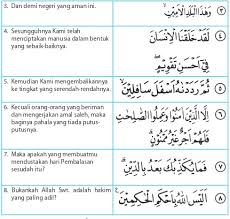 3. Dan demi negeri yang aman ini.
وَهٰذَا الْبَلَدِ الْاَمِيْنِۙ ﴿٣﴾
4. Sesungguhnya Kami telah
menciptakan manusia dalam bentuk
yang sebaik-baiknya.
لَقَدْ خَلَقْنَا الْاِنْسَانَ
فِيْٓ اَحْسَنِ تَقْوِيْمٍۖ ﴿٤﴾
5. Kemudian Kami mengembalikannya
ke tingkat yang serendah-rendahnya.
ثُمَّ رَدَدْنٰهُ اَسْفَلَ سَافِلِيْنَۙ ﴿٥﴾
6. Kecuali orang-orang yang beriman
dan mengerjakan amal saleh, maka
baginya pahala yang tiada putus-
putusnya.
اِلَّا الَّذِيْنَ اٰمَنُوْا وَعَمِلُوا الصّٰلِحٰتِ
فَلَهُمْ اَجْرٌ غَيْرُ مَمْنُوْنٍۗ ﴿٦﴾
7. Maka apakah yang membuatmu
mendustakan hari Pembalasan
sesudah itu?
فَمَا يُكَذِّبُكَ بَعْدُ بِالدِّيْنِۗ ﴿٧﴾
8. Bukankarah Allah Swt. adalah hakim
yang paling adil?
اَلَيْسَ اللّٰهُ بِاَحْكَمِ الْحٰكِمِيْنَ ﴿٨﴾